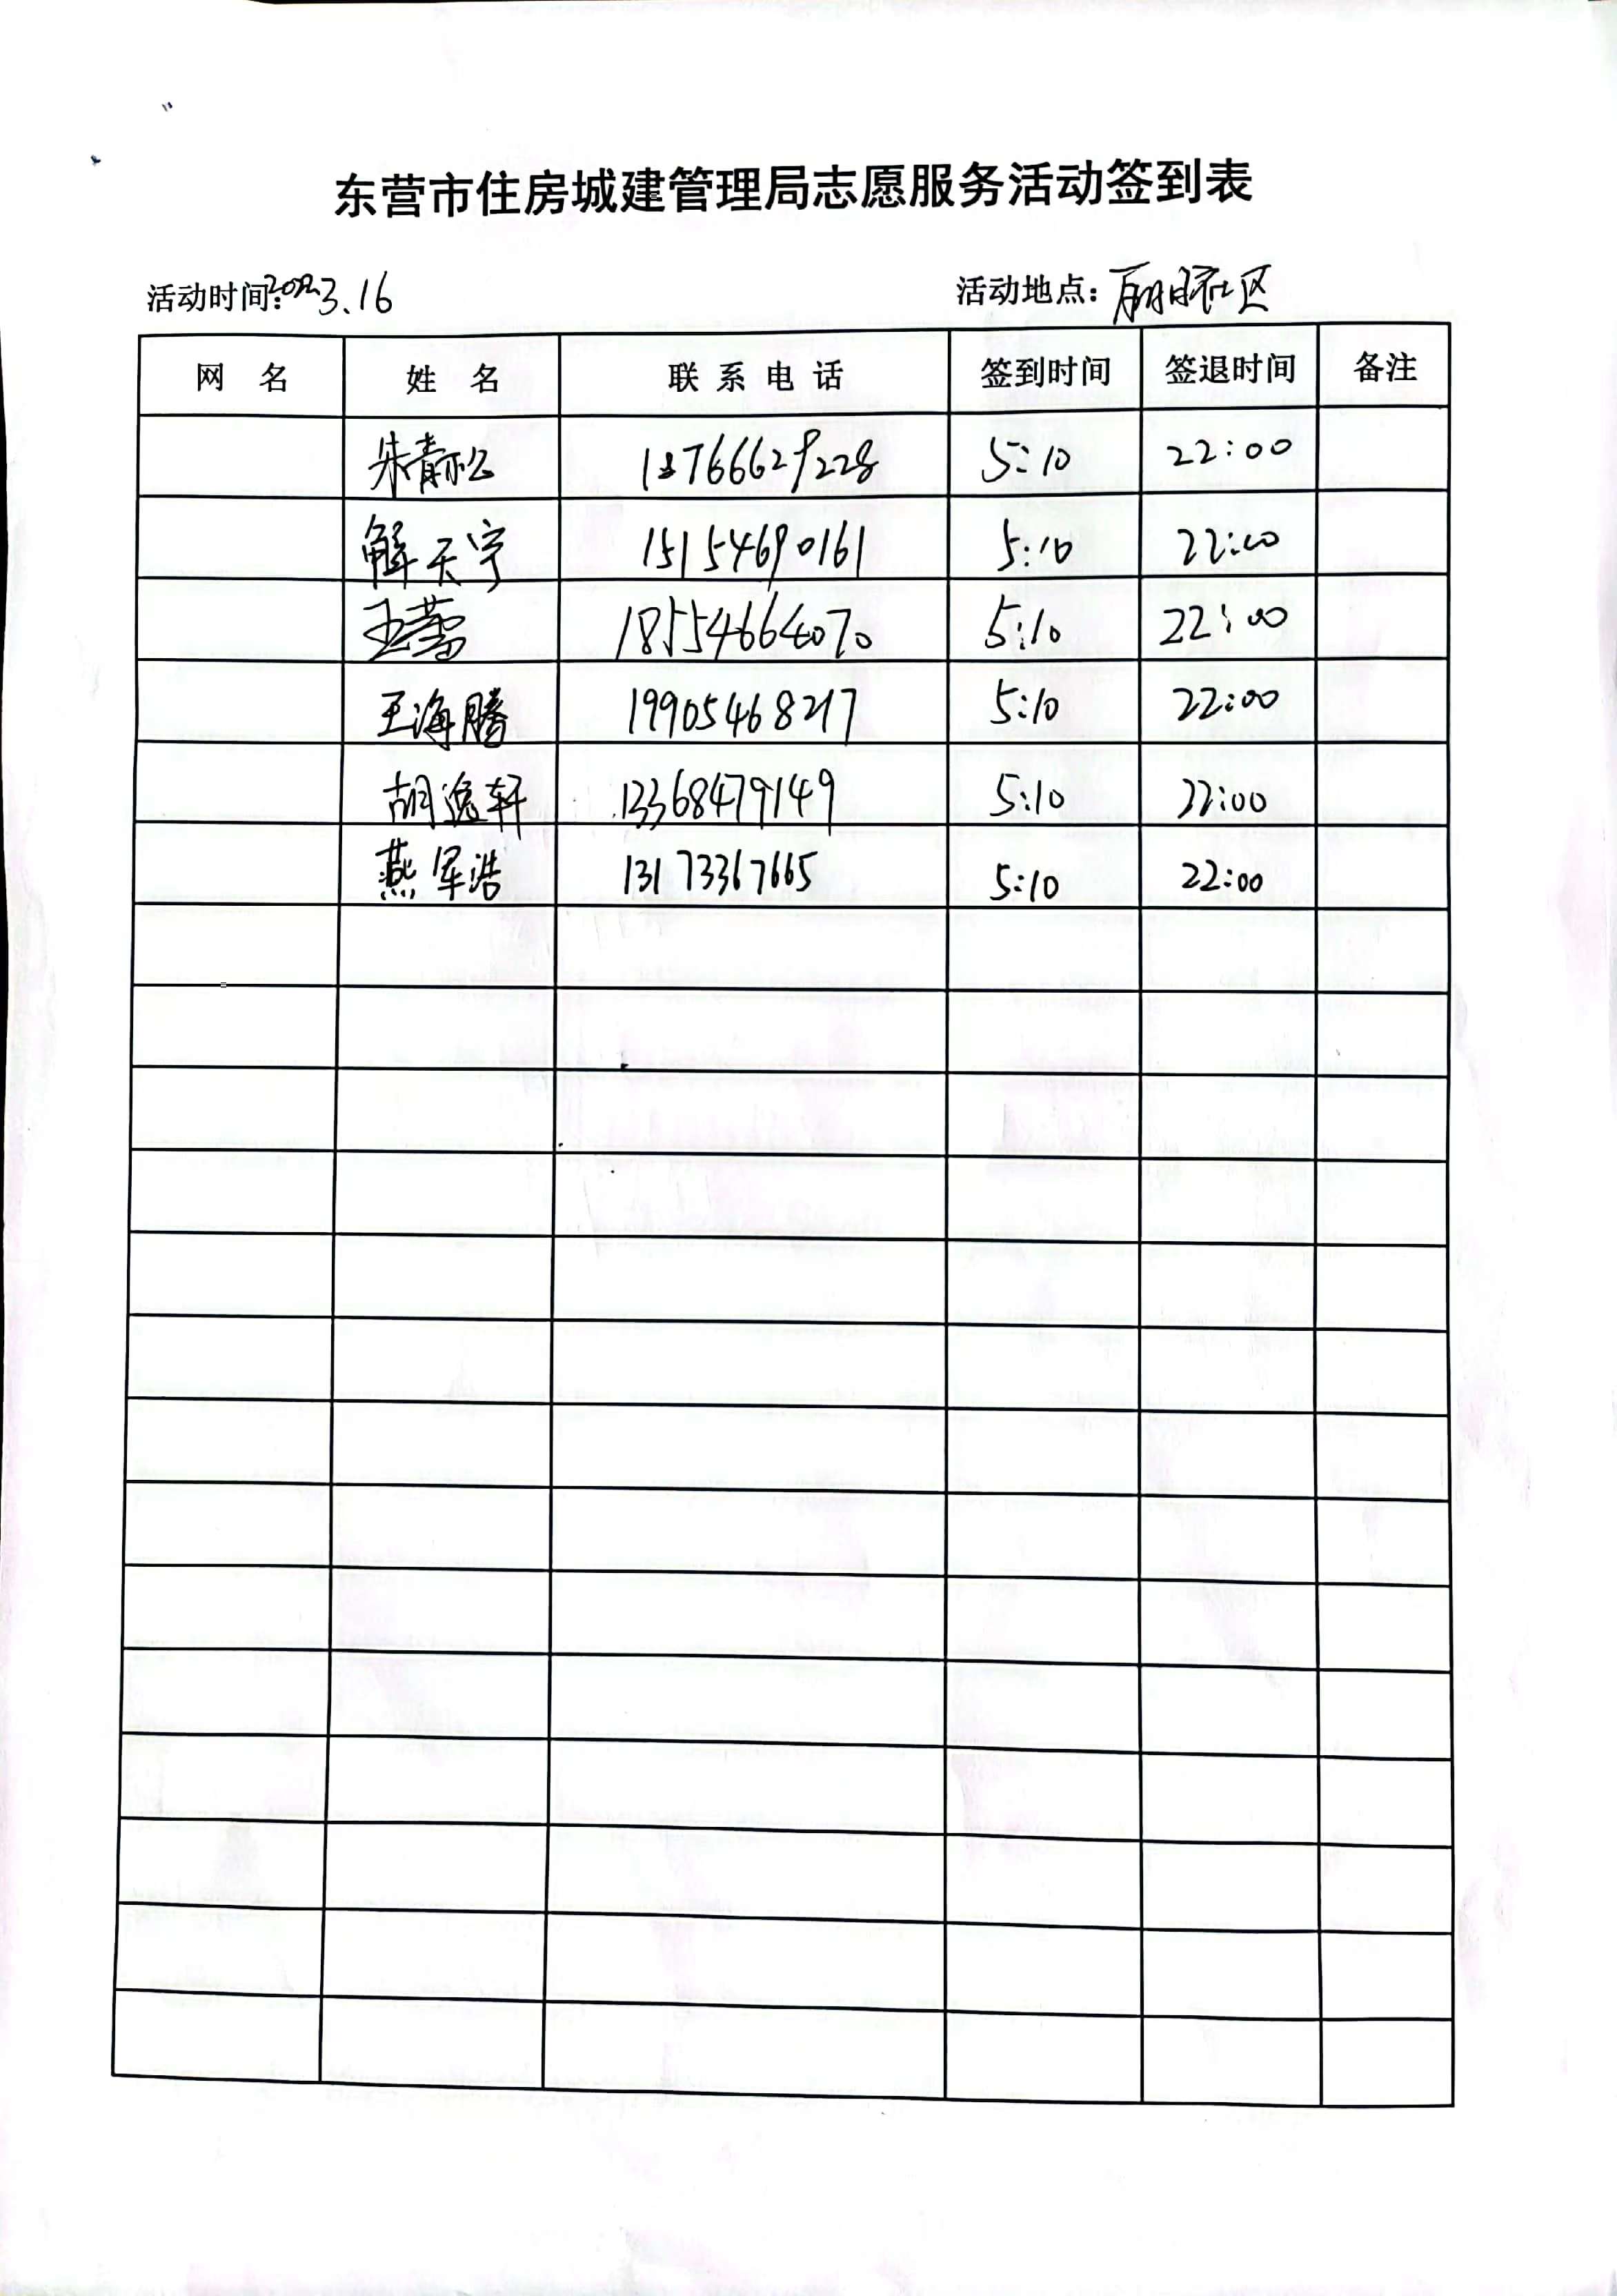 东营市住房城建管理局志愿服务活动签到表
活动时间:2022.3.16 活动地点:丽日社区
网 名 姓 名 联系电话 签到时间 签退时间 备注
朱青松 13766629228 5:10 22:00
解天宇 15154690161 5:10 22:00
王蕾 18554664070 5:10 22:00
王海腾 19905468217 5:10 22:00
胡逸轩 13368479149 5:10 22:00
燕军浩 13173367665 5:10 22:00